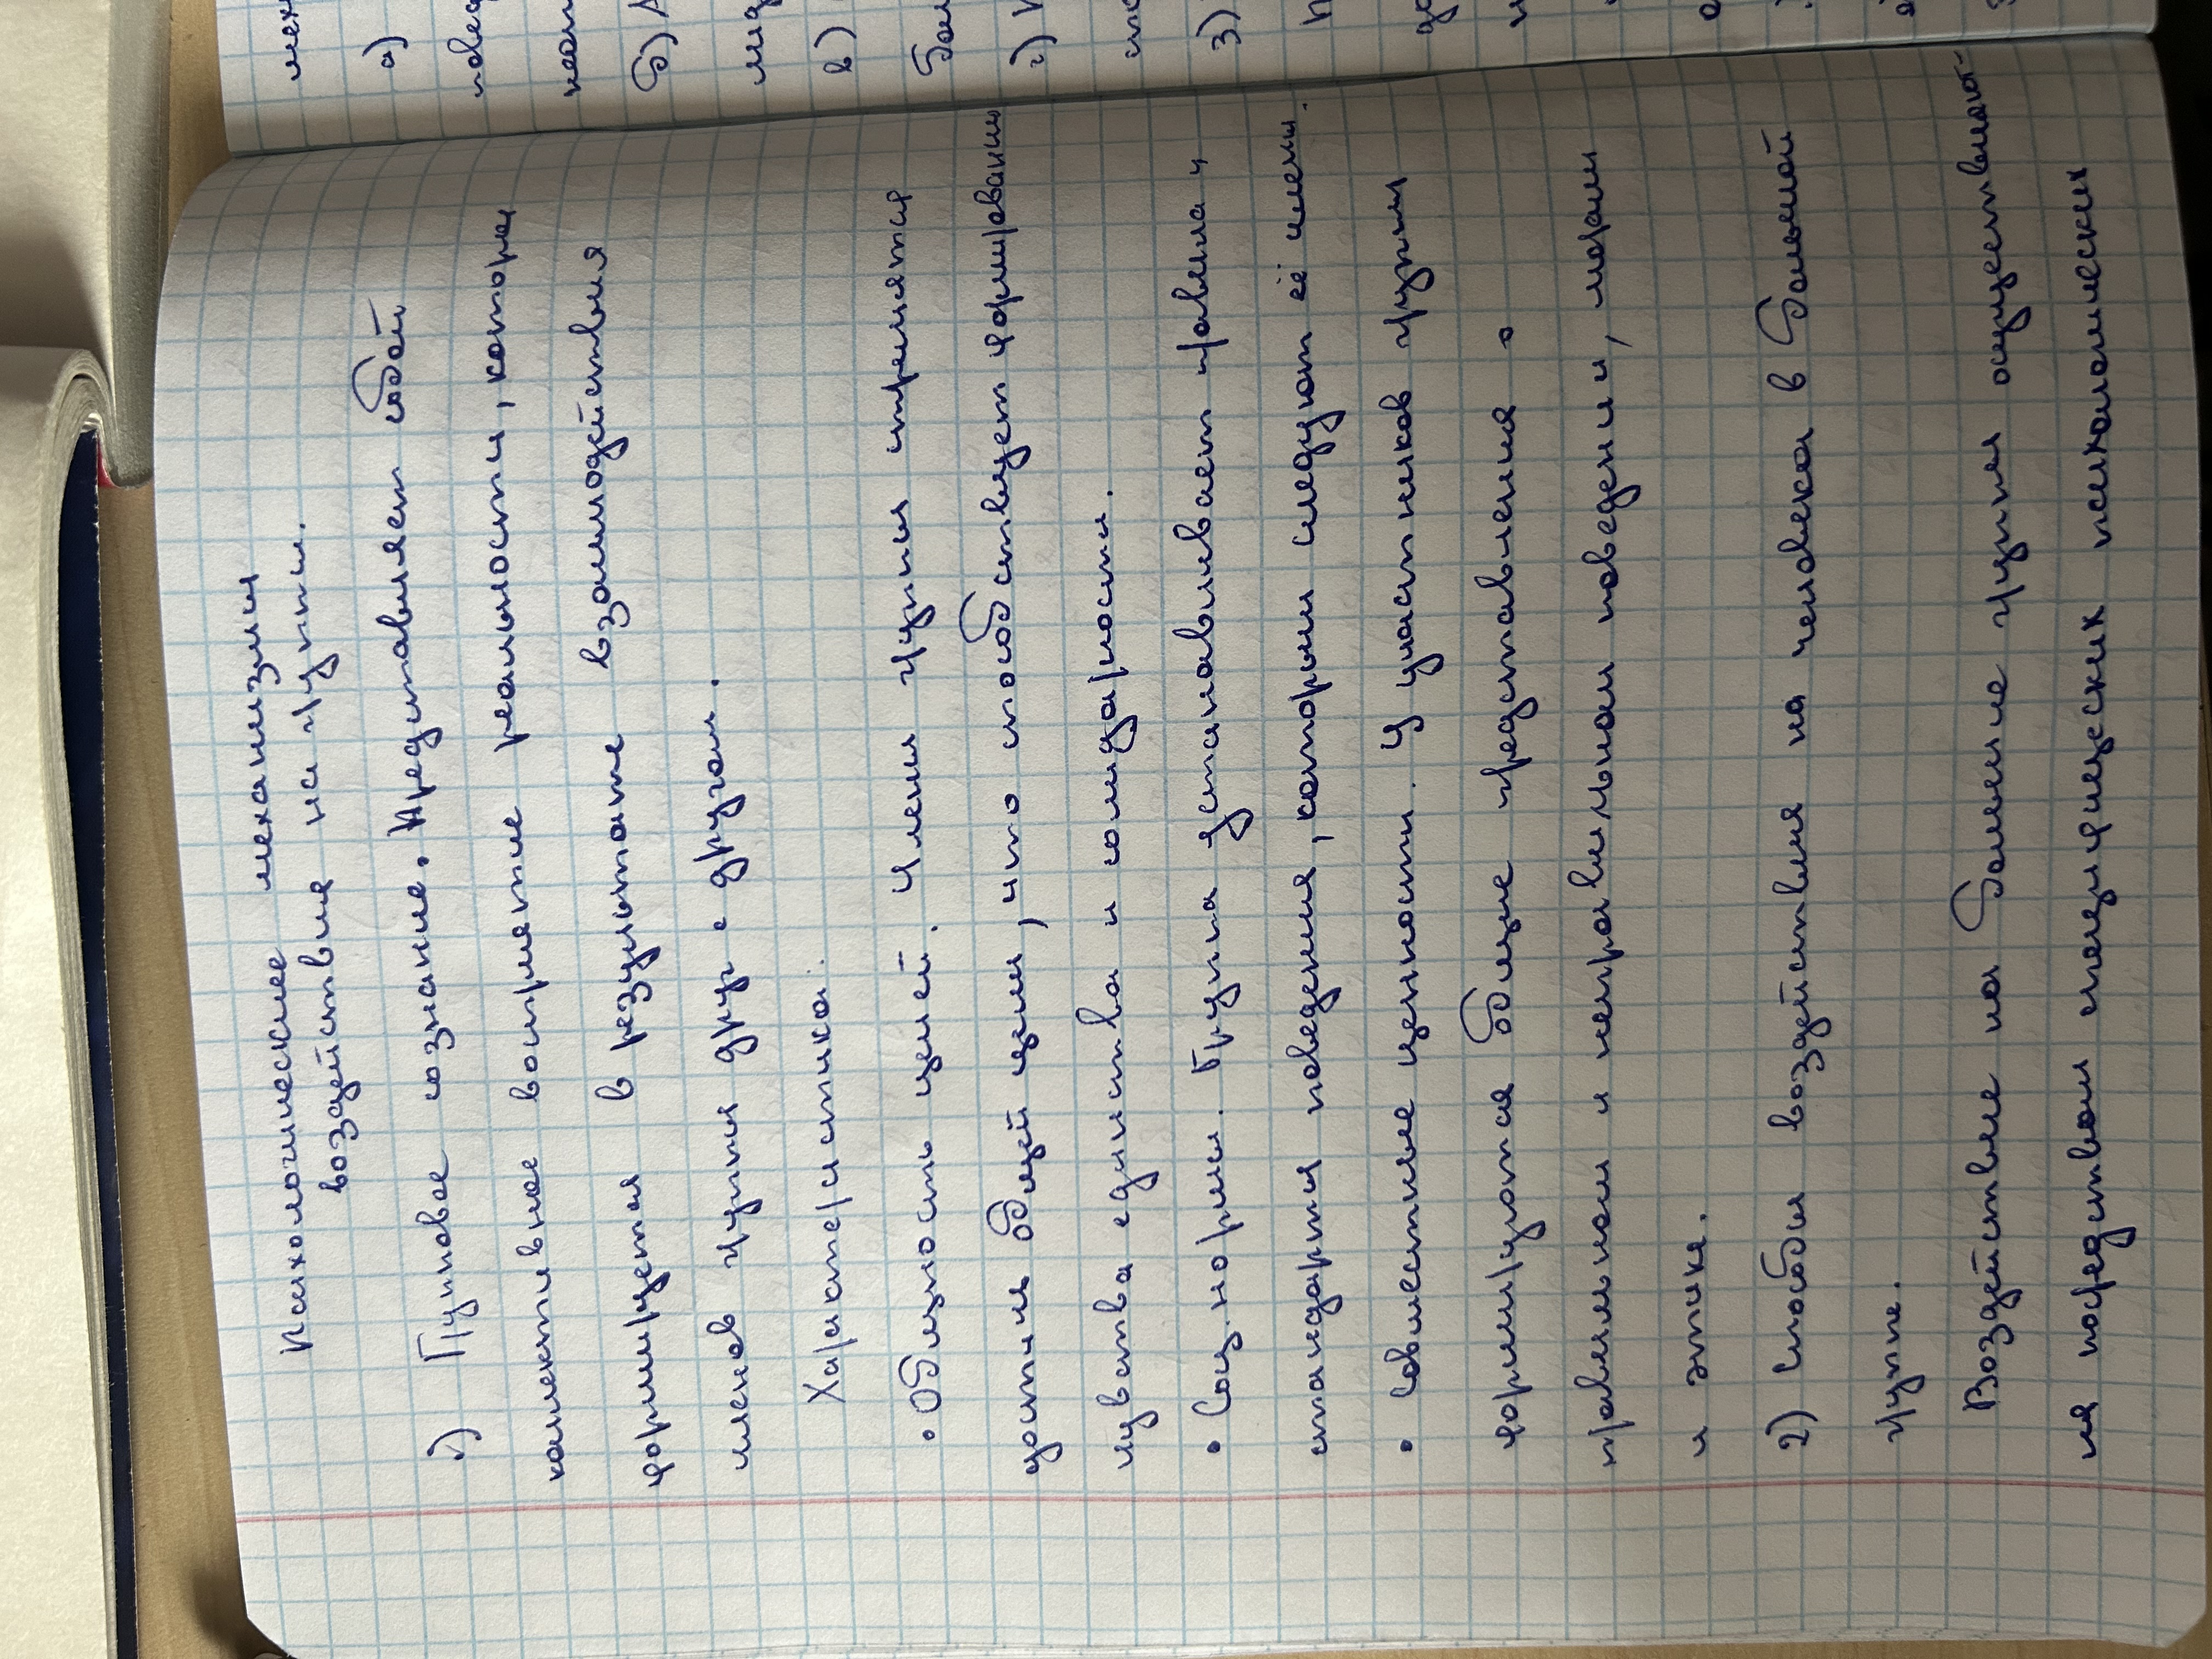 Психологические механизмы
воздействия на группы.
1) Групповое сознание. Представляет собой
коллективное восприятие реальности, которы
формируется в результате взаимодействия
членов группы друг с другом.
Характеристика:
• Общность целей. Члены группы стремятся
достичь общей цели, что способствует формированию
чувства единства и солидарности.
• Соц. нормы. Группа устанавливает правила и
стандарты поведения, которым следуют её члены.
• Совместные ценности. У участников группы
формируются общие представления о
правильном и неправильном поведении, морали
и этике.
2) Способы воздействия на человека в большой
группе.
Воздействие на большие группы осуществляют-
ся посредством специфических психологических
а)
б)
в)
г)
3)